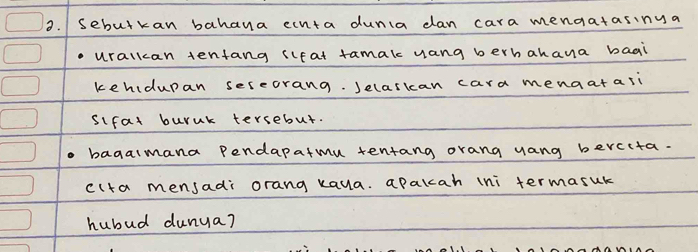 2. Sebutkan bahaya cinta dunia dan cara mengatasinya
• uraikan tentang sifat tamak yang berbahaya bagi
kehidupan seseorang. Jelaskan cara mengatasi
sifat buruk tersebut.
• bagaimana pendapatmu tentang orang yang bercita-
cita menjadi orang kaya. apakah ini termasuk
hubud dunya?